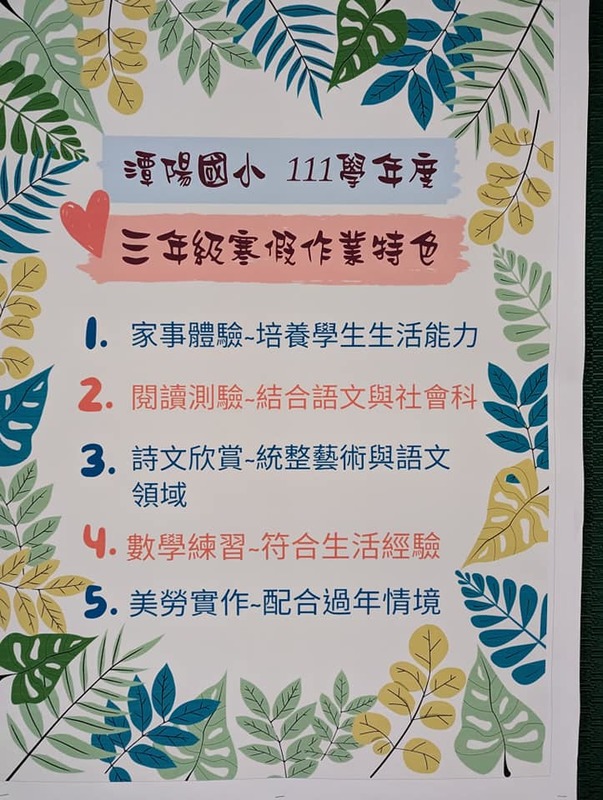 潭陽國小 111學年度
三年級寒假作業特色
1. 家事體驗~培養學生生活能力
2. 閱讀測驗~結合語文與社會科
3. 詩文欣賞~統整藝術與語文
領域
4. 數學練習~符合生活經驗
5. 美勞實作~配合過年情境